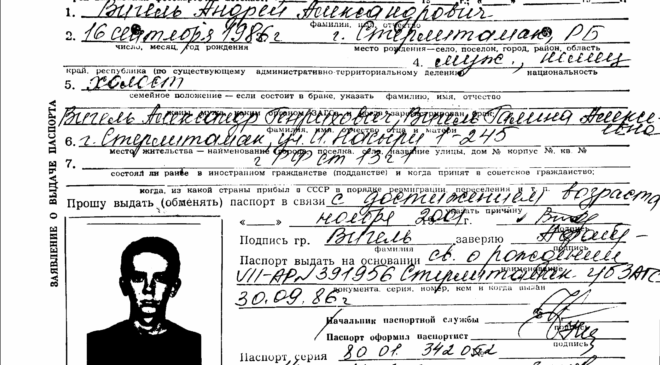 1. Вигель Андрей Александрович
фамилия, имя, отчество
2. 16 сентября 1986 г. Стерлитамак, РБ
число, месяц, год рождения место рождения—село, поселок, город, район, область
4. муж., немец
край, республика (по существующему административно-территориальному делению национальность
5. холост
семейное положение — если состоит в браке, указать фамилию, имя, отчество
Вигель Александр Генрихович, Вигель Галина Алексеевна
фамилия, имя, отчество отца и матери
6. г. Стерлитамак, ул. И. Насыри 1-245
место жительства — наименование поселка, села, название улицы, дом № корпус №, кв. №
7. г РФ ст 13 ч 1
состоял ли ранее в иностранном гражданстве (подданстве) и когда принят в советское гражданство;
когда, из какой страны прибыл в СССР в порядке реэмиграции, переселения и т. п.
Прошу выдать (обменять) паспорт в связи с достижением возраста
указать причину
«__» ноября 2001 г.
Подпись
Подпись гр. Вигель заверяю
фамилия подпись
Паспорт выдать на основании св. о рождении
наименование
VIII-АР № 391956 Стерлитамак. г/б ЗАГС
документа, серия, номер, кем и когда выдан
30.09.86 г
Начальник паспортной службы
подпись
Паспорт оформил паспортист
подпись
Паспорт серия 80 01 342052
ЗАЯВЛЕНИЕ О ВЫДАЧЕ ПАСПОРТА